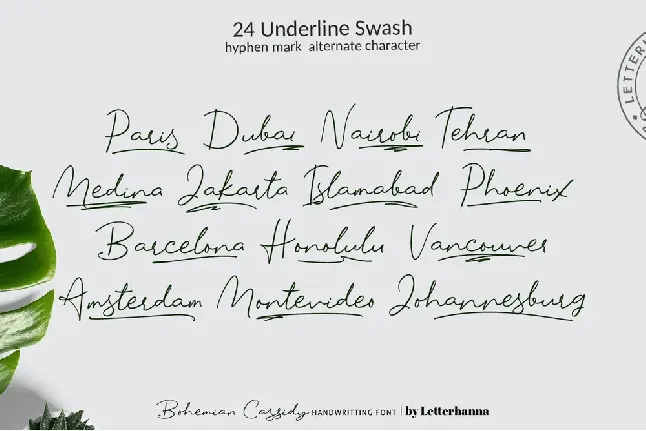 24 Underline Swash
hyphen mark alternate character
Paris Dubai Nairobi Tehran
Medina Jakarta Islamabad Phoenix
Barcelona Honolulu Vancouver
Amsterdam Montevideo Johannesburg
Bohemian Cassidy HANDWRITTING FONT | by Letterhanna
LETTER